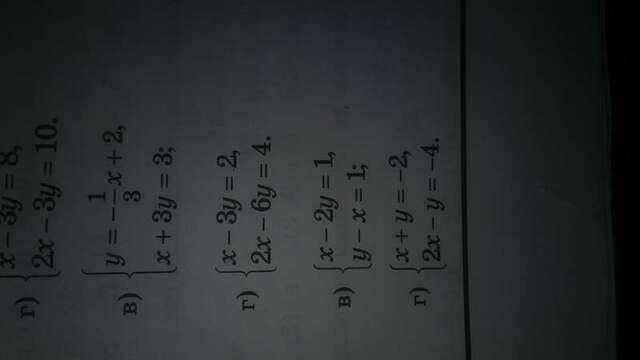 x − 3y = 8,
г) 2x − 3y = 10.
в) y = −1/3 x + 2,
x + 3y = 3;
г) x − 3y = 2,
2x − 6y = 4.
в) x − 2y = 1,
y − x = 1;
г) x + y = −2,
2x − y = −4.